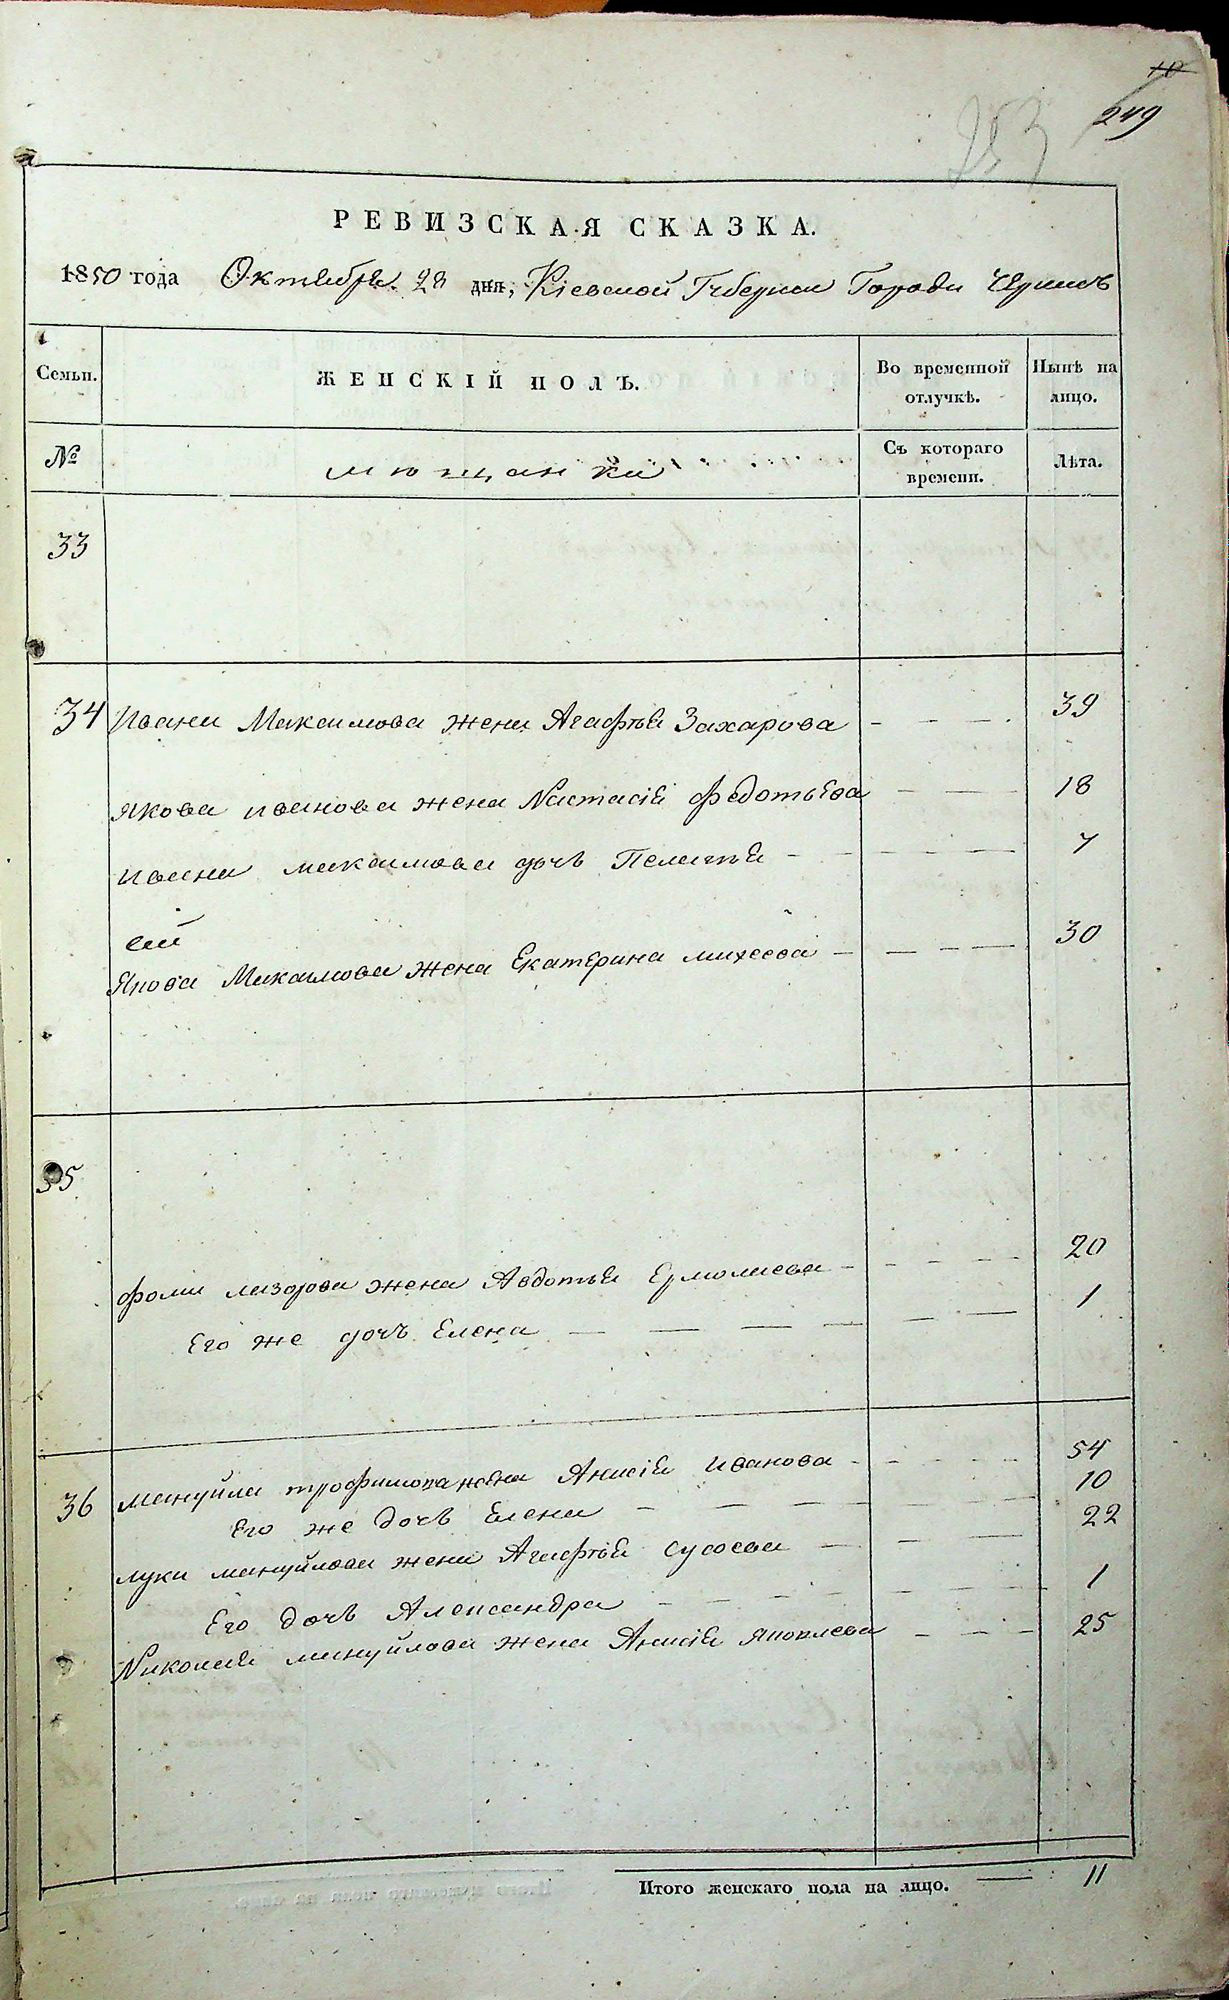 10
249
253
РЕВИЗСКАЯ СКАЗКА.
1850 года Октября 28 дня, Кіевской Губерніи Города Черкасъ
Семьи. ЖЕНСКІЙ ПОЛЪ. Во временной отлучкѣ. Нынѣ на лицо.
№ мющанки Съ котораго времени. Лѣта.
33
34 Ивана Максимова жена Агафья Захарова - - - - 39
Якова Иванова жена Настасія Федотьева - - - 18
Ивана Максимова дочь Пелагія - - - - - 7
Якова Максимова жена Екатерина Михеева - - - - 30
35
Фомы Лазорова жена Авдотья Ермолаева - - - - - 20
Его же дочь Елена - - - - - - 1
36 Мануйла Трофимова жена Анисія Иванова - - - - - 54
Его же дочь Елена - - - - - - 10
Луки Мануйлова жена Агафія Сусоева - - - - 22
Его дочь Александра - - - - - - 1
Николая Мануйлова жена Анисія Яковлева - - - - 25
Итого женскаго пола на лицо. — 11